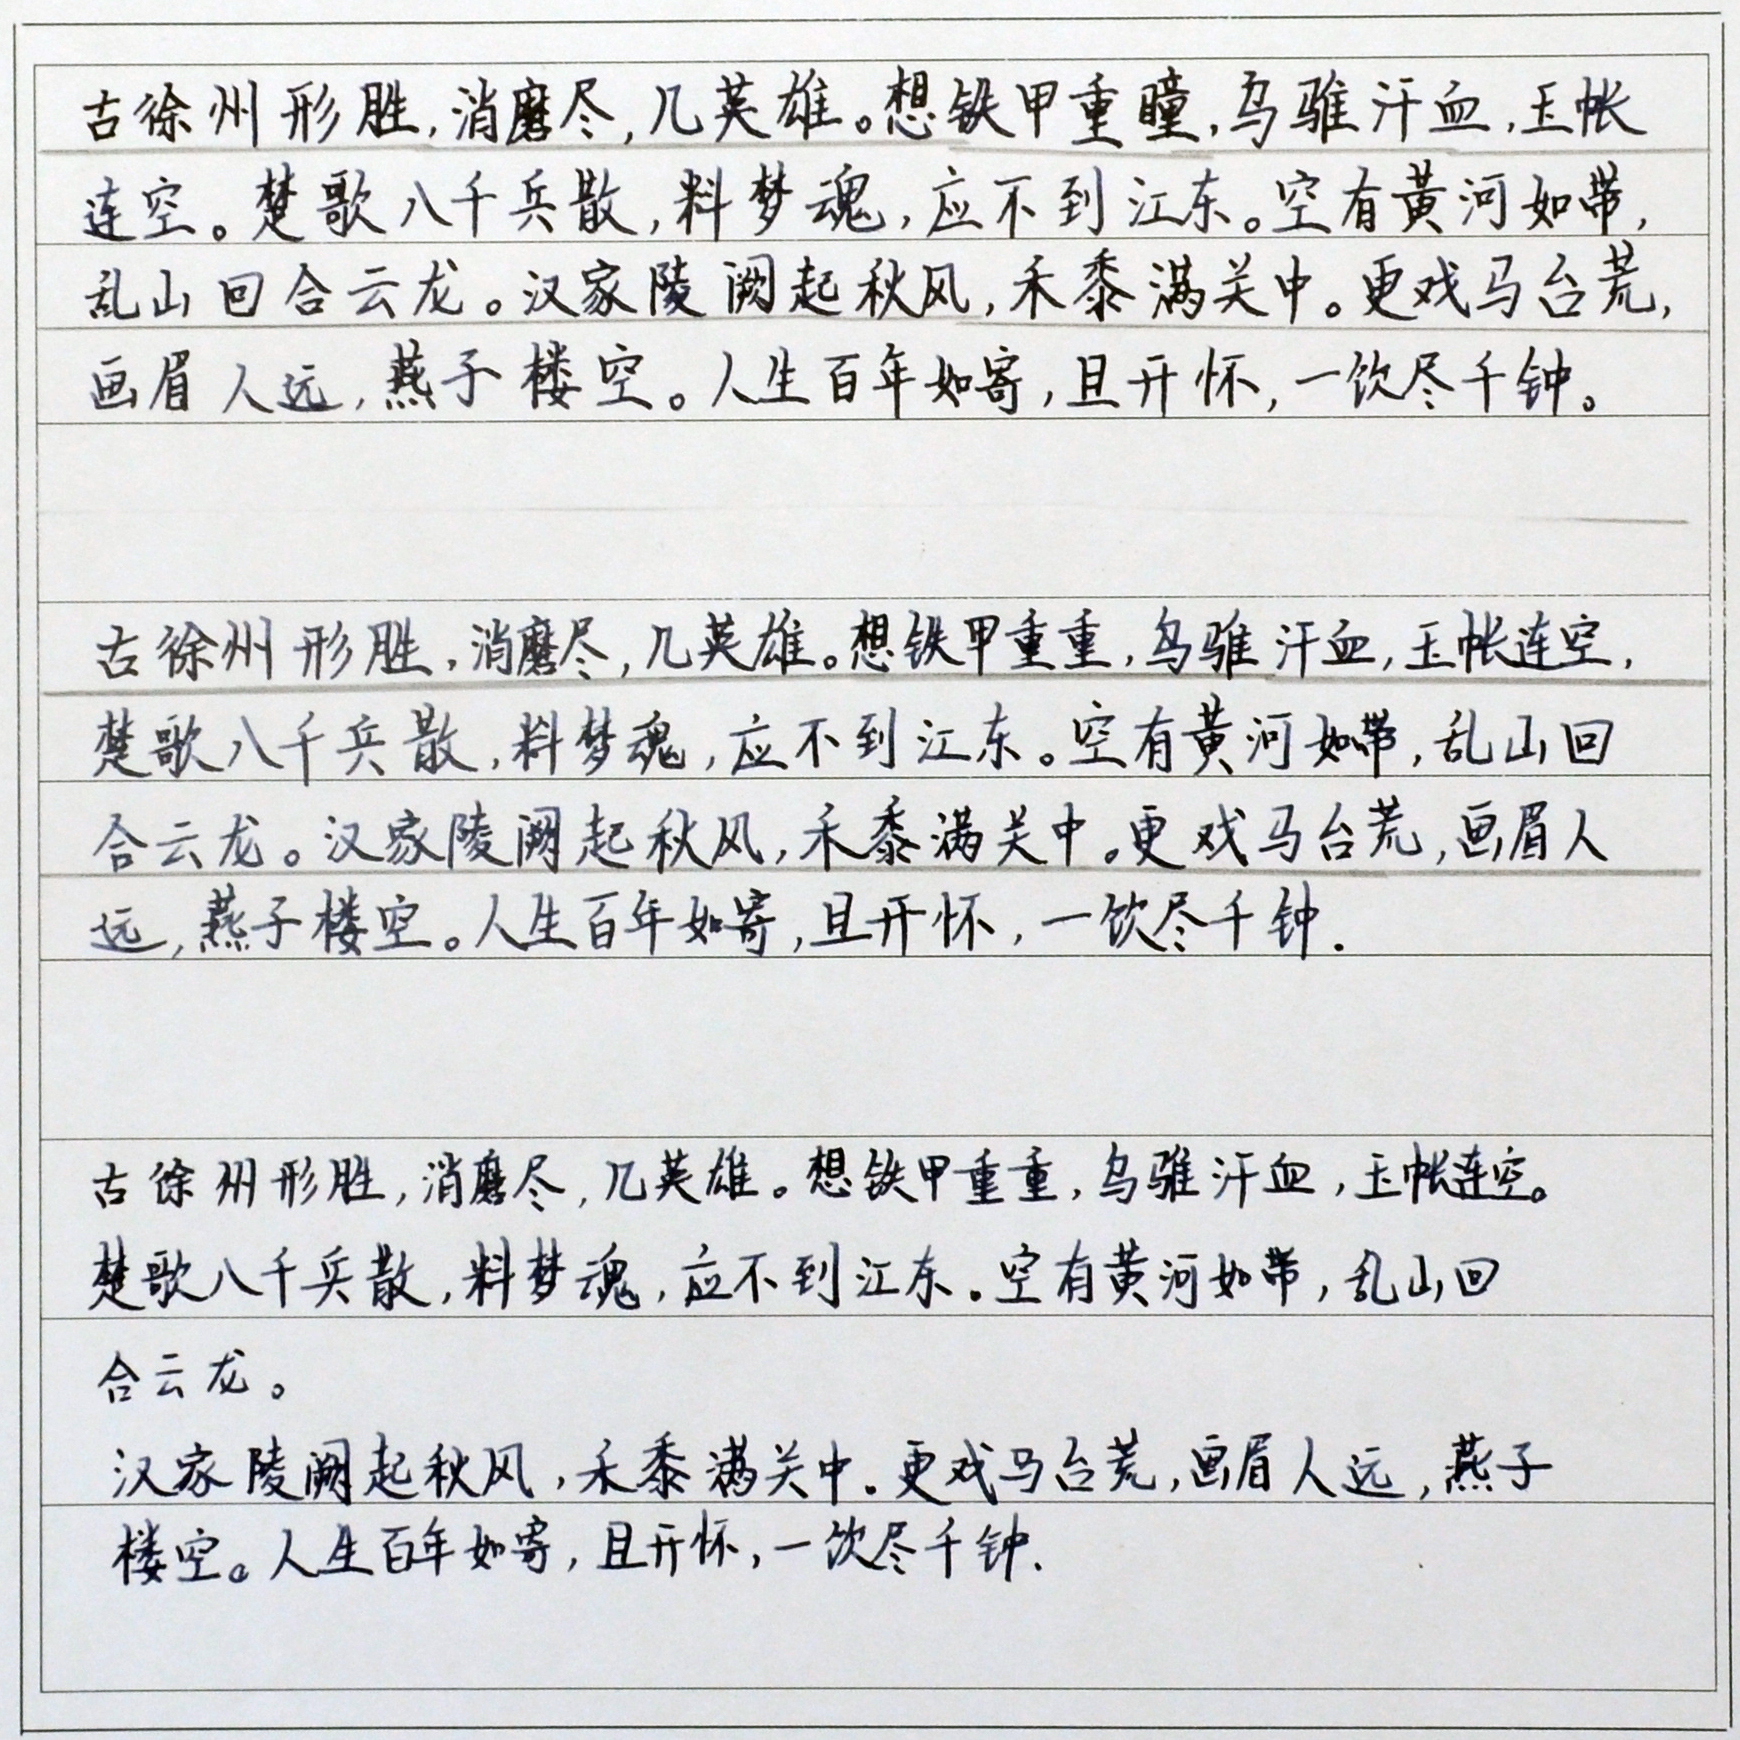 古徐州形胜,消磨尽,几英雄。想铁甲重瞳,乌骓汗血,玉帐
连空。楚歌八千兵散,料梦魂,应不到江东。空有黄河如带,
乱山回合云龙。汉家陵阙起秋风,禾黍满关中。更戏马台荒,
画眉人远,燕子楼空。人生百年如寄,且开怀,一饮尽千钟。
古徐州形胜,消磨尽,几英雄。想铁甲重重,乌骓汗血,玉帐连空,
楚歌八千兵散,料梦魂,应不到江东。空有黄河如带,乱山回
合云龙。汉家陵阙起秋风,禾黍满关中。更戏马台荒,画眉人
远,燕子楼空。人生百年如寄,且开怀,一饮尽千钟.
古徐州形胜,消磨尽,几英雄。想铁甲重重,乌骓汗血,玉帐连空。
楚歌八千兵散,料梦魂,应不到江东.空有黄河如带,乱山回
合云龙。
汉家陵阙起秋风,禾黍满关中.更戏马台荒,画眉人远,燕子
楼空。人生百年如寄,且开怀,一饮尽千钟.